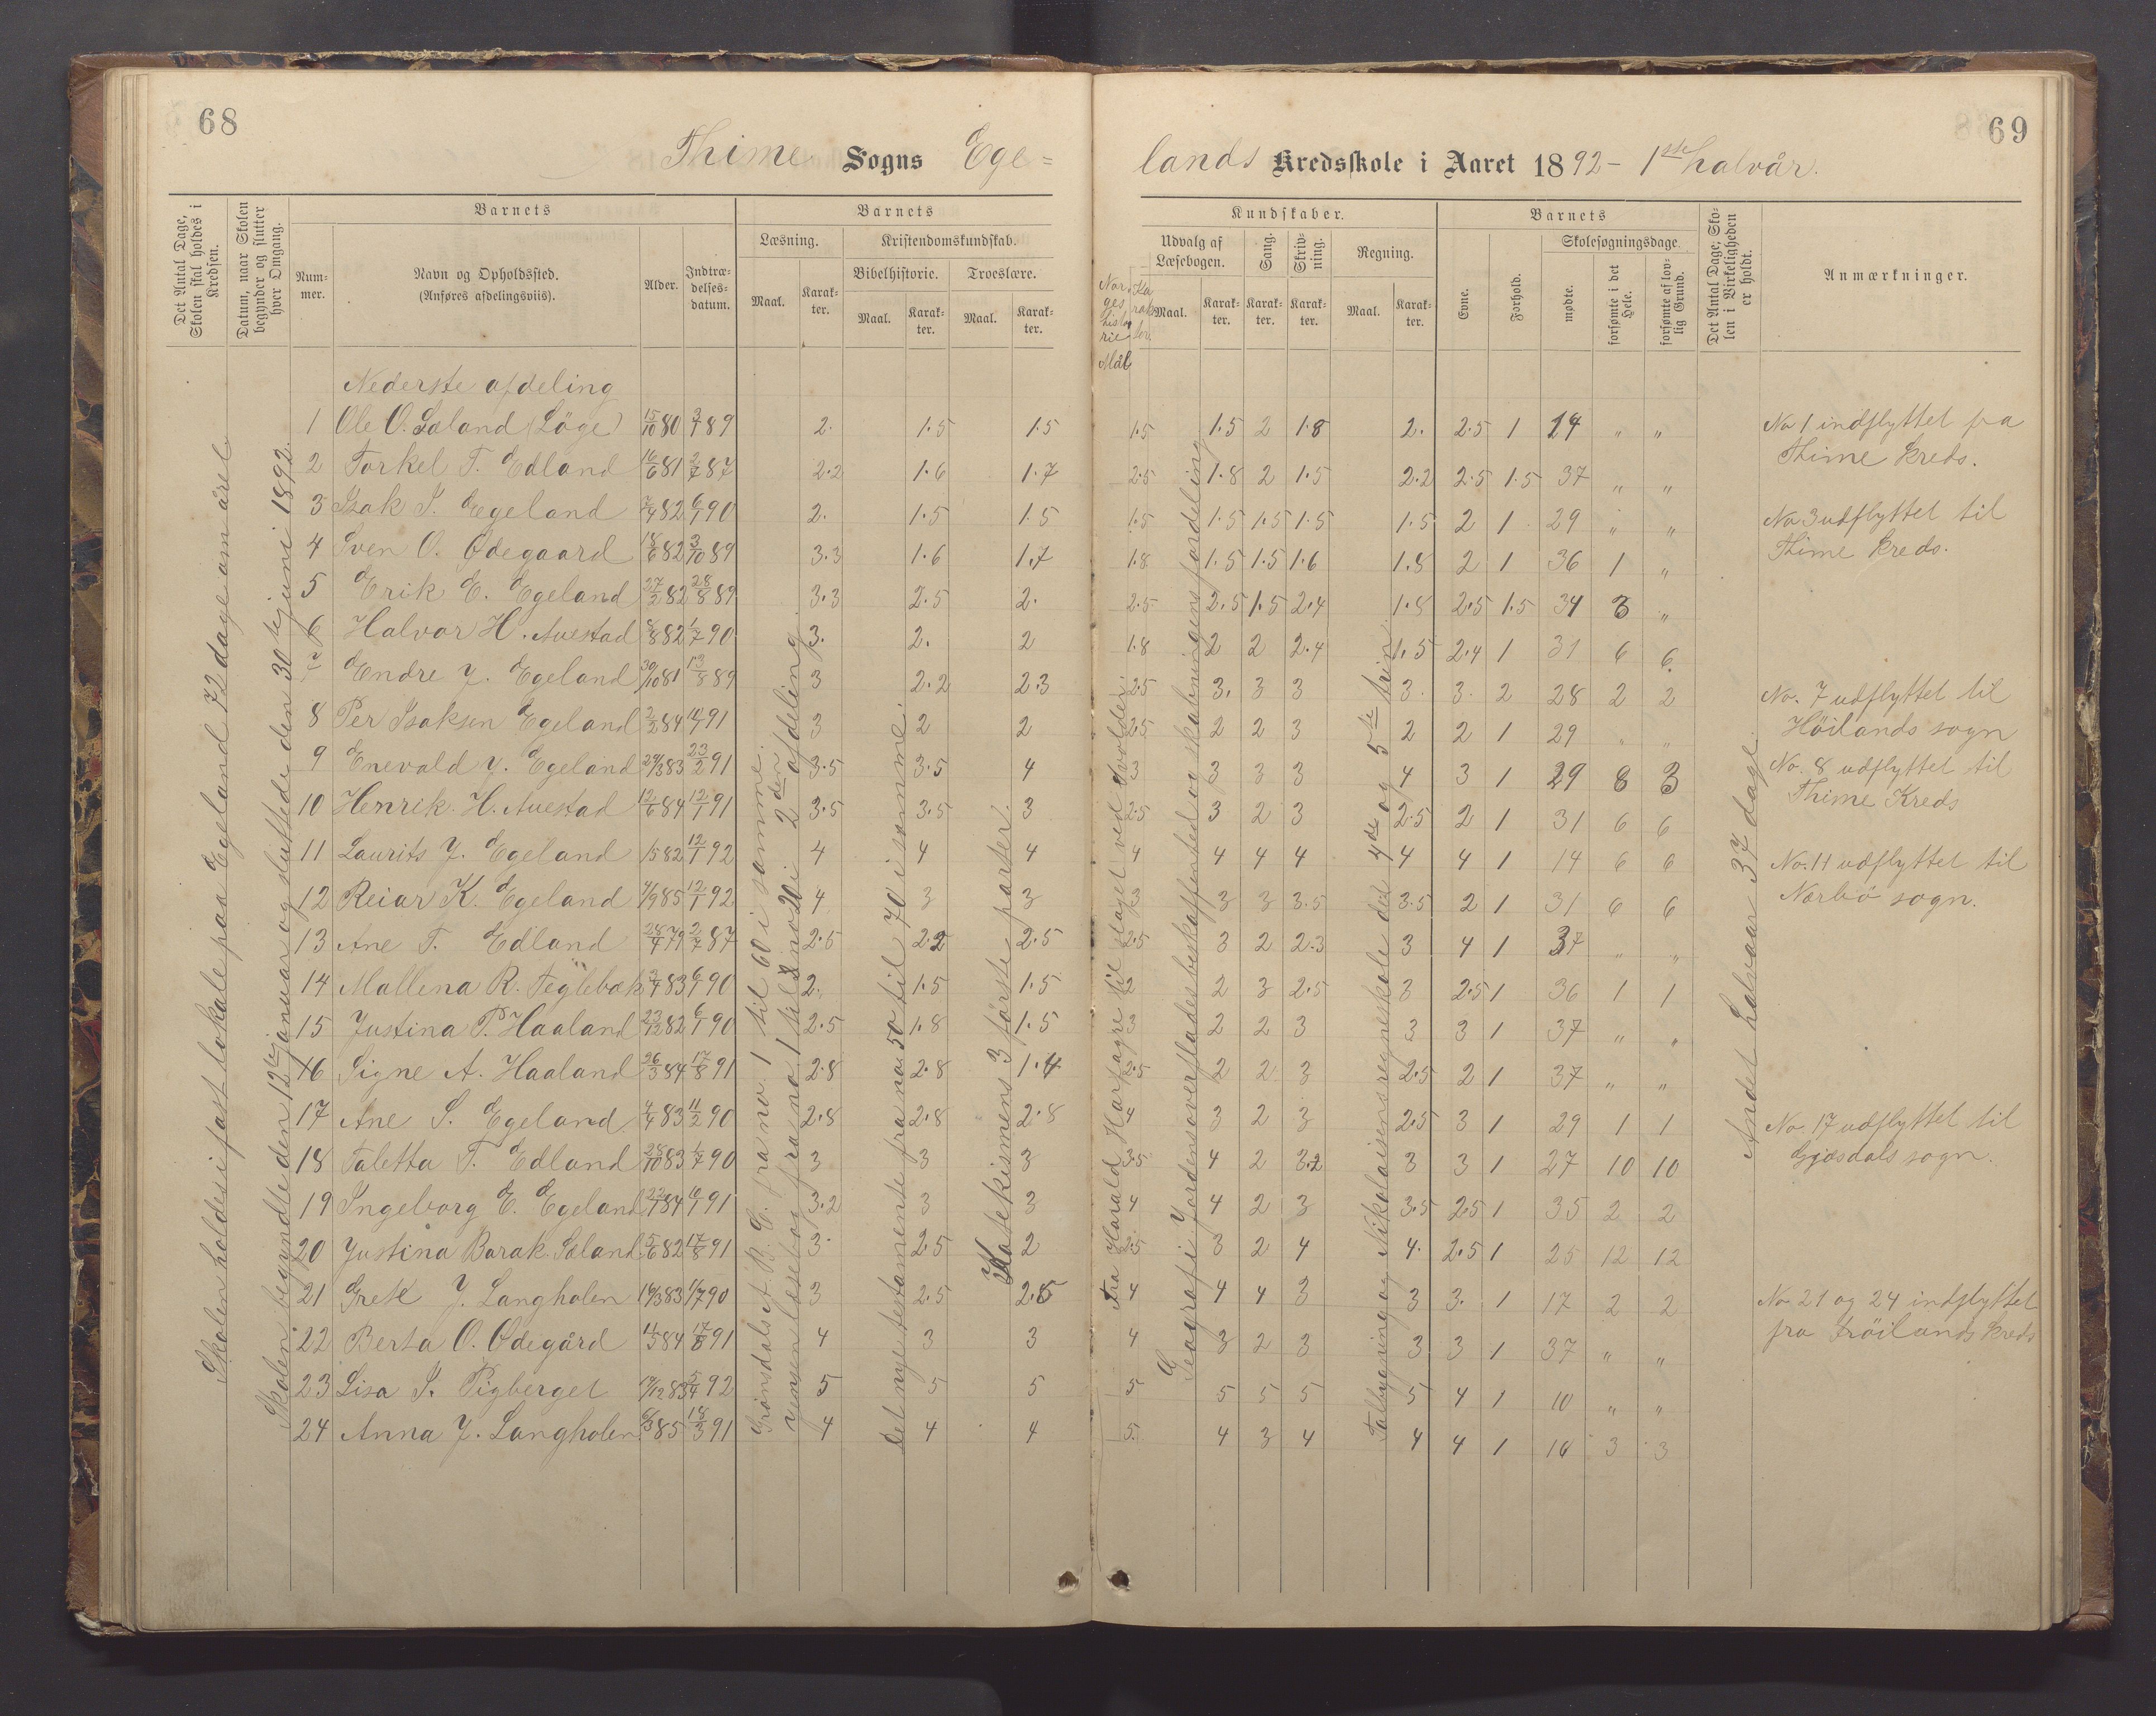 68
69
Thime Sogns Ege=
lands Kredsskole i Aaret 1892 - 1ste halvår.
Det Antal Dage, Skolen skal holdes i Kredsen.
Datum, naar Skolen begynder og slutter hver Omgang.
Barnets
Nummer.
Navn og Opholdssted.
(Anføres afdelingsviis).
Alder.
Indtrædelsesdatum.
Barnets
Læsning.
Maal.
Karakter.
Kristendomskundskab.
Bibelhistorie.
Maal.
Karakter.
Troeslære.
Maal.
Karakter.
Kundskaber.
Norges historie
Mål
Karakter.
Udvalg af Læsebogen.
Maal.
Karakter.
Sang.
Karakter.
Skrivning.
Karakter.
Regning.
Maal.
Karakter.
Barnets
Evne.
Forhold.
Skolesøgningsdage.
mødte.
forsømte i det Hele.
forsømte af lovlig Grund.
Det Antal Dage, Skolen i Virkeligheden er holdt.
Anmærkninger.
Skolen holdes i fast lokale paa Egeland 72 dage om året
Skolen begyndte den 12te januar og sluttede den 30te juni 1892.
Nederste afdeling
1 Ole O. Sæland (Löge) 15/10 80 3/7 89 2. 1.5 1.5 1.5 1.5 2 1.8 2. 2.5 1 14 " "
2 Torkel T. Edland 16/6 81 2/7 87 2.2 1.6 1.7 2.5 1.8 2 1.5 2.2 2.5 1.5 37 " "
3 Isak S. Egeland 7/4 82 6/1 90 2. 1.5 1.5 1.5 1.5 1.5 1.5 1.5 2 1 29 " "
4 Sven O. Ödegaard 18/6 82 3/10 89 3.3 1.6 1.7 1.8 1.5 1.5 1.6 1.8 2 1 36 1 "
5 Erik E. Egeland 27/2 82 28/8 89 3.3 2.5 2. 2.5 2.5 1.5 2.4 1.8 2.5 1.5 34 3 "
6 Halvor H. Auestad 8/8 82 1/7 90 3. 2. 2 1.8 2 2 2.4 1.5 2.4 1 31 6 6
7 Endre J. Egeland 30/10 81 13/8 89 3 2.2 2.3 2.5 3. 3 3 3. 3. 2 28 2 2
8 Per Isaksen Egeland 2/2 84 91 3 2 2 2.5 2 2 3 2 2 1 29 " "
9 Enevald J. Egeland 29/3 83 23/2 91 3.5 3.5 4 3 3 3 3 4 3 1 29 8 3
10 Henrik H. Auestad 12/6 84 12/1 91 3.5 3.5 3 2.5 3 2 3 2.5 2 1 31 6 6
11 Laurits J. Egeland 82 12/1 92 4 4 4 4 4 4 4 4 4 1 14 6 6
12 Reiar K. Egeland 4/9 85 12/1 92 4 3 3 3 3 3 3.5 3.5 2 1 31 6 6
13 Ane T. Edland 28/4 79 2/7 87 2.5 2.2 2.5 2.5 3 2 2.3 3 4 1 37 " "
14 Mallena R. Teglebæk 83 6/1 90 2. 1.5 1.5 2 2 3 2.5 3 2.5 1 36 1 1
15 Justina P. Haaland 23/12 82 6/1 90 2.5 1.8 1.5 3 2 2 3 3 3 1 37 " "
16 Signe A. Haaland 26/3 84 17/8 91 2.8 2.8 1.4 2.5 2 2 3 2.5 2 1 37 " "
17 Ane S. Egeland 4/4 83 11/2 90 2.8 2.8 2.8 4 3 2 3 2.5 3 1 29 1 1
18 Taletta T. Edland 28/10 83 1/7 90 3 3 3 3.5 4 2 3.2 3 3 1 27 10 10
19 Ingeborg E. Egeland 84 91 3.2 3 3 4 4 2 3 3.5 2.5 1 35 2 2
20 Justina Barak. Sæland 5/6 82 17/8 91 3. 2.5 2 2.5 3 2 4 4. 2.5 1 25 12 12
21 Grete J. Langholen 83 1/7 90 3 2.5 2.5 4 4 4 3 3 3. 1 17 2 2
22 Berta O. Ödegård 84 17/8 91 4 3 3 4 3 2 3 3 3 1 37 " "
23 Lisa S. Tigberget 83 5/4 92 5 5 5 5 5 5 5 5 4 1 10 " "
24 Anna J. Langholen 6/3 85 18/3 91 4 4 4 5. 4 3 4 4 4 1 16 3 3
Grönsdals A. B. C. fra no. 1 til 60 i samme.
Jensen læsebog fra no 1 til 2 no 20 i 2den afdeling.
Det nye testamente fra no 50 til 70 i samme.
Katekismens 3 første parter.
Fra Harald Haarfagre til slaget ved Svolder.
Geografi Jordens overflades beskaffenhed og skabningens fordeling
Talbygning og Nikolaisens regneskole det 4de og 5te trin.
Andet halvaar 37 dage.
No 1 indflyttet fra
Thime kreds.
No 3 udflyttet til
Thime kreds.
No. 7 udflyttet til
Höilands sogn
No. 8 udflyttet til
Thime Kreds
No. 11 udflyttet til
Nærbö sogn.
No. 17 udflyttet til
Gjæsdals sogn.
No 21 og 24 indflyttet
fra Fröilands kreds